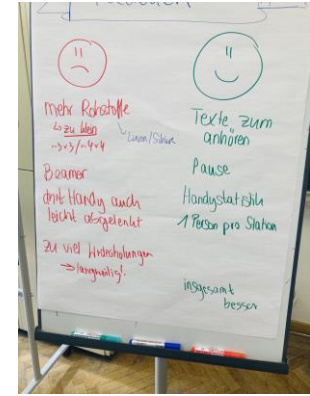 mehr Rohstoffe
↳ zu klein
Beamer
mit Handy auch
leicht abgelenkt
zu viel Wiederholungen
→ langweilig!
Texte zum
anhören
Pause
Handystatistik
1 Person pro Station
insgesamt
besser